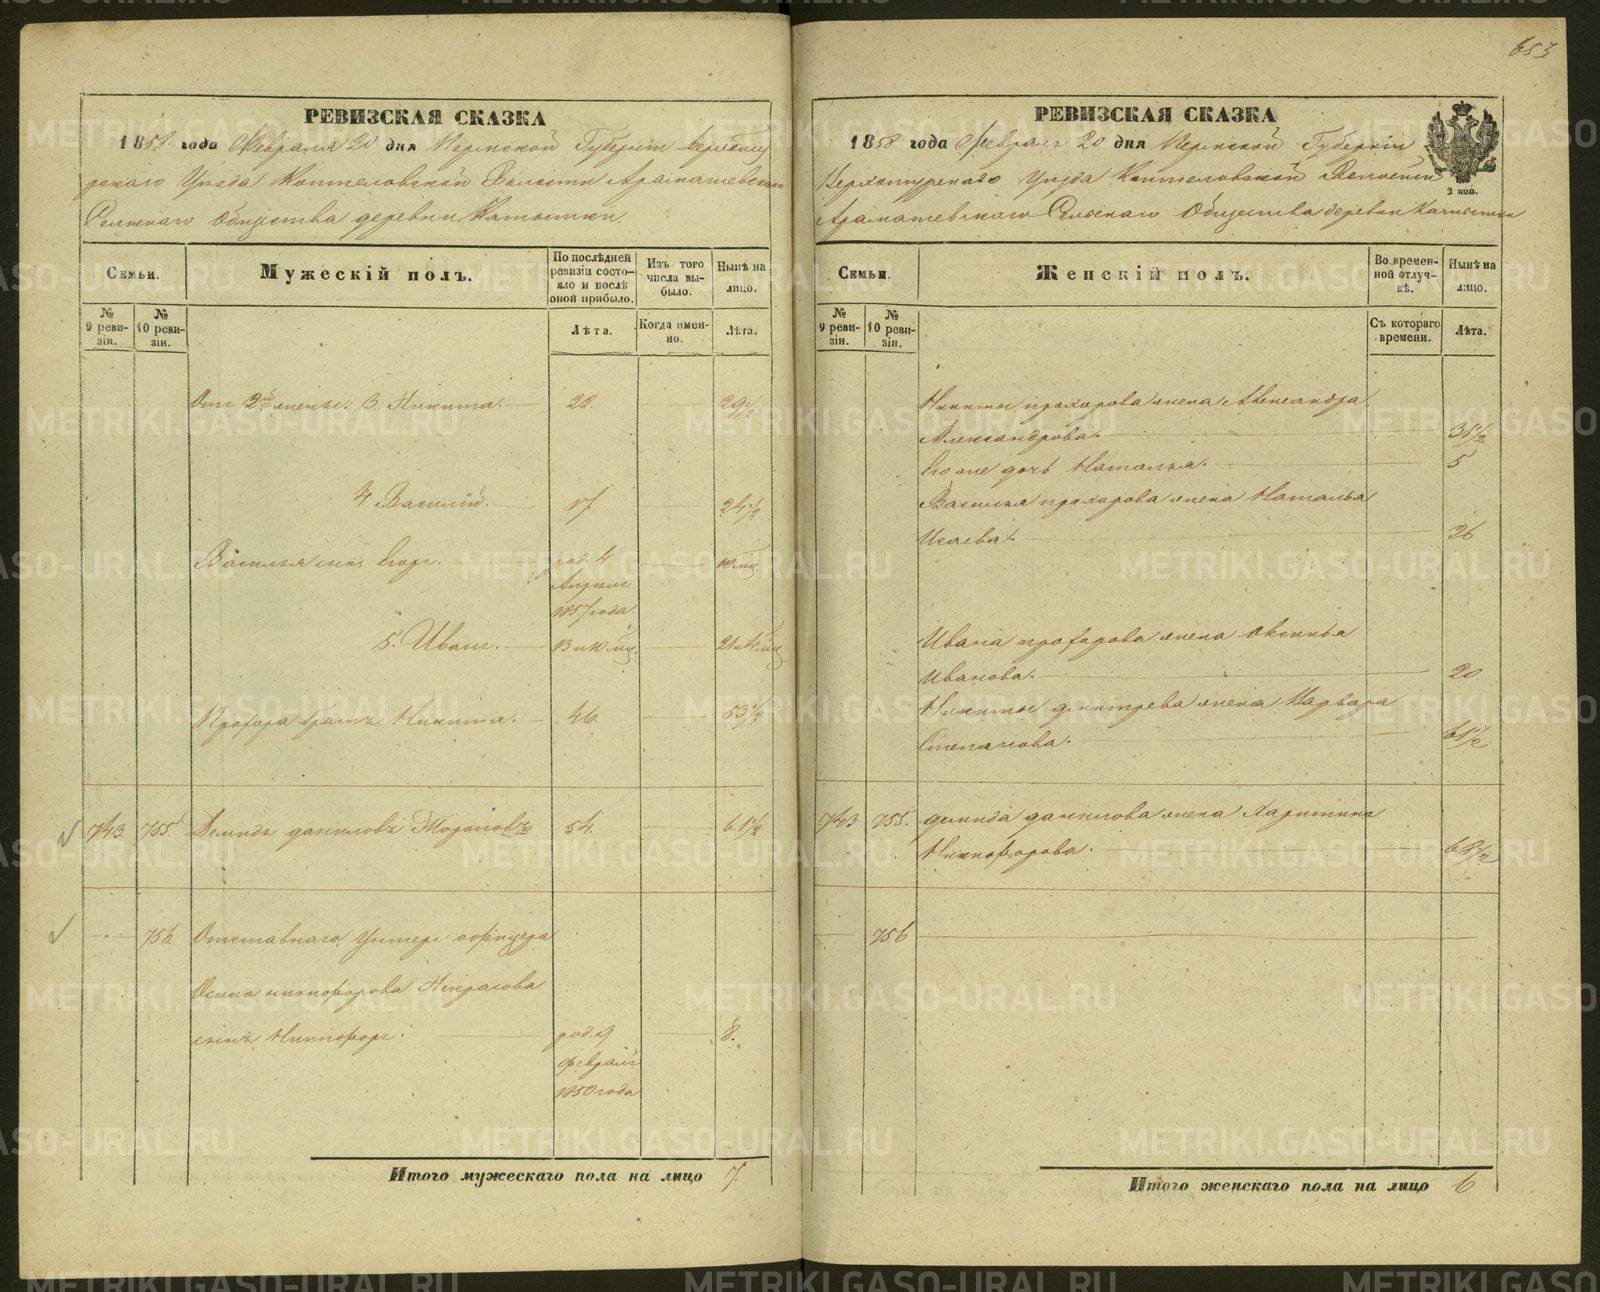 653
РЕВИЗСКАЯ СКАЗКА
1858 года Февраля 20 дня Пермской Губернiи Верхоту
рскаго Уезда Коптеловской Волости Арамашевскаго
Сельскаго Общества деревни Катышки.
Семьи.
Мужескiй полъ.
По послѣдней ревизiи состояло и послѣ оной прибыло.
Изъ того числа выбыло.
Нынѣ на лицо.
№ 9 ревизiи.
№ 10 ревизiи.
Лѣта.
Когда именно.
Лѣта.
Отъ 2й жены: 3. Никита. 22. 29½
4 Василiй. 17 24½
Василья сынъ Егоръ. род. 4 Апреля 1857 года. 10 мц.
5. Иванъ.
Прохора братъ Никита. 46. 53½
743. 755. Демидъ Даниловъ 54. 61½
756. Отставнаго Унтеръ офицера
Осипа Никифорова Некрасова
сынъ Никифоръ. род. 9 Февраля 1850 года 8.
Итого мужескаго пола на лицо 7.
РЕВИЗСКАЯ СКАЗКА
1858 года Февраля 20 дня Пермской Губернiи
Верхотурскаго Уезда Коптеловской Волости
Арамашевскаго Сельскаго Общества деревни Катышки
3 коп.
Семьи.
Женскiй полъ.
Во временной отлучкѣ.
Нынѣ на лицо.
№ 9 ревизiи.
№ 10 ревизiи.
Съ котораго времени.
Лѣта.
Никиты Прохорова жена Александра
Александрова.
Его же дочь Наталья. 5
Василья Прохорова жена Наталья
Исаева. 26
Ивана Прохорова жена Оксинья
Иванова. 20
Никиты Дмитрева жена Варвара
Степанова. 61½
743 755. Демида Данилова жена Харитина
Никифорова. 68½
756
Итого женскаго пола на лицо 6
METRIKI.GASO-URAL.RU